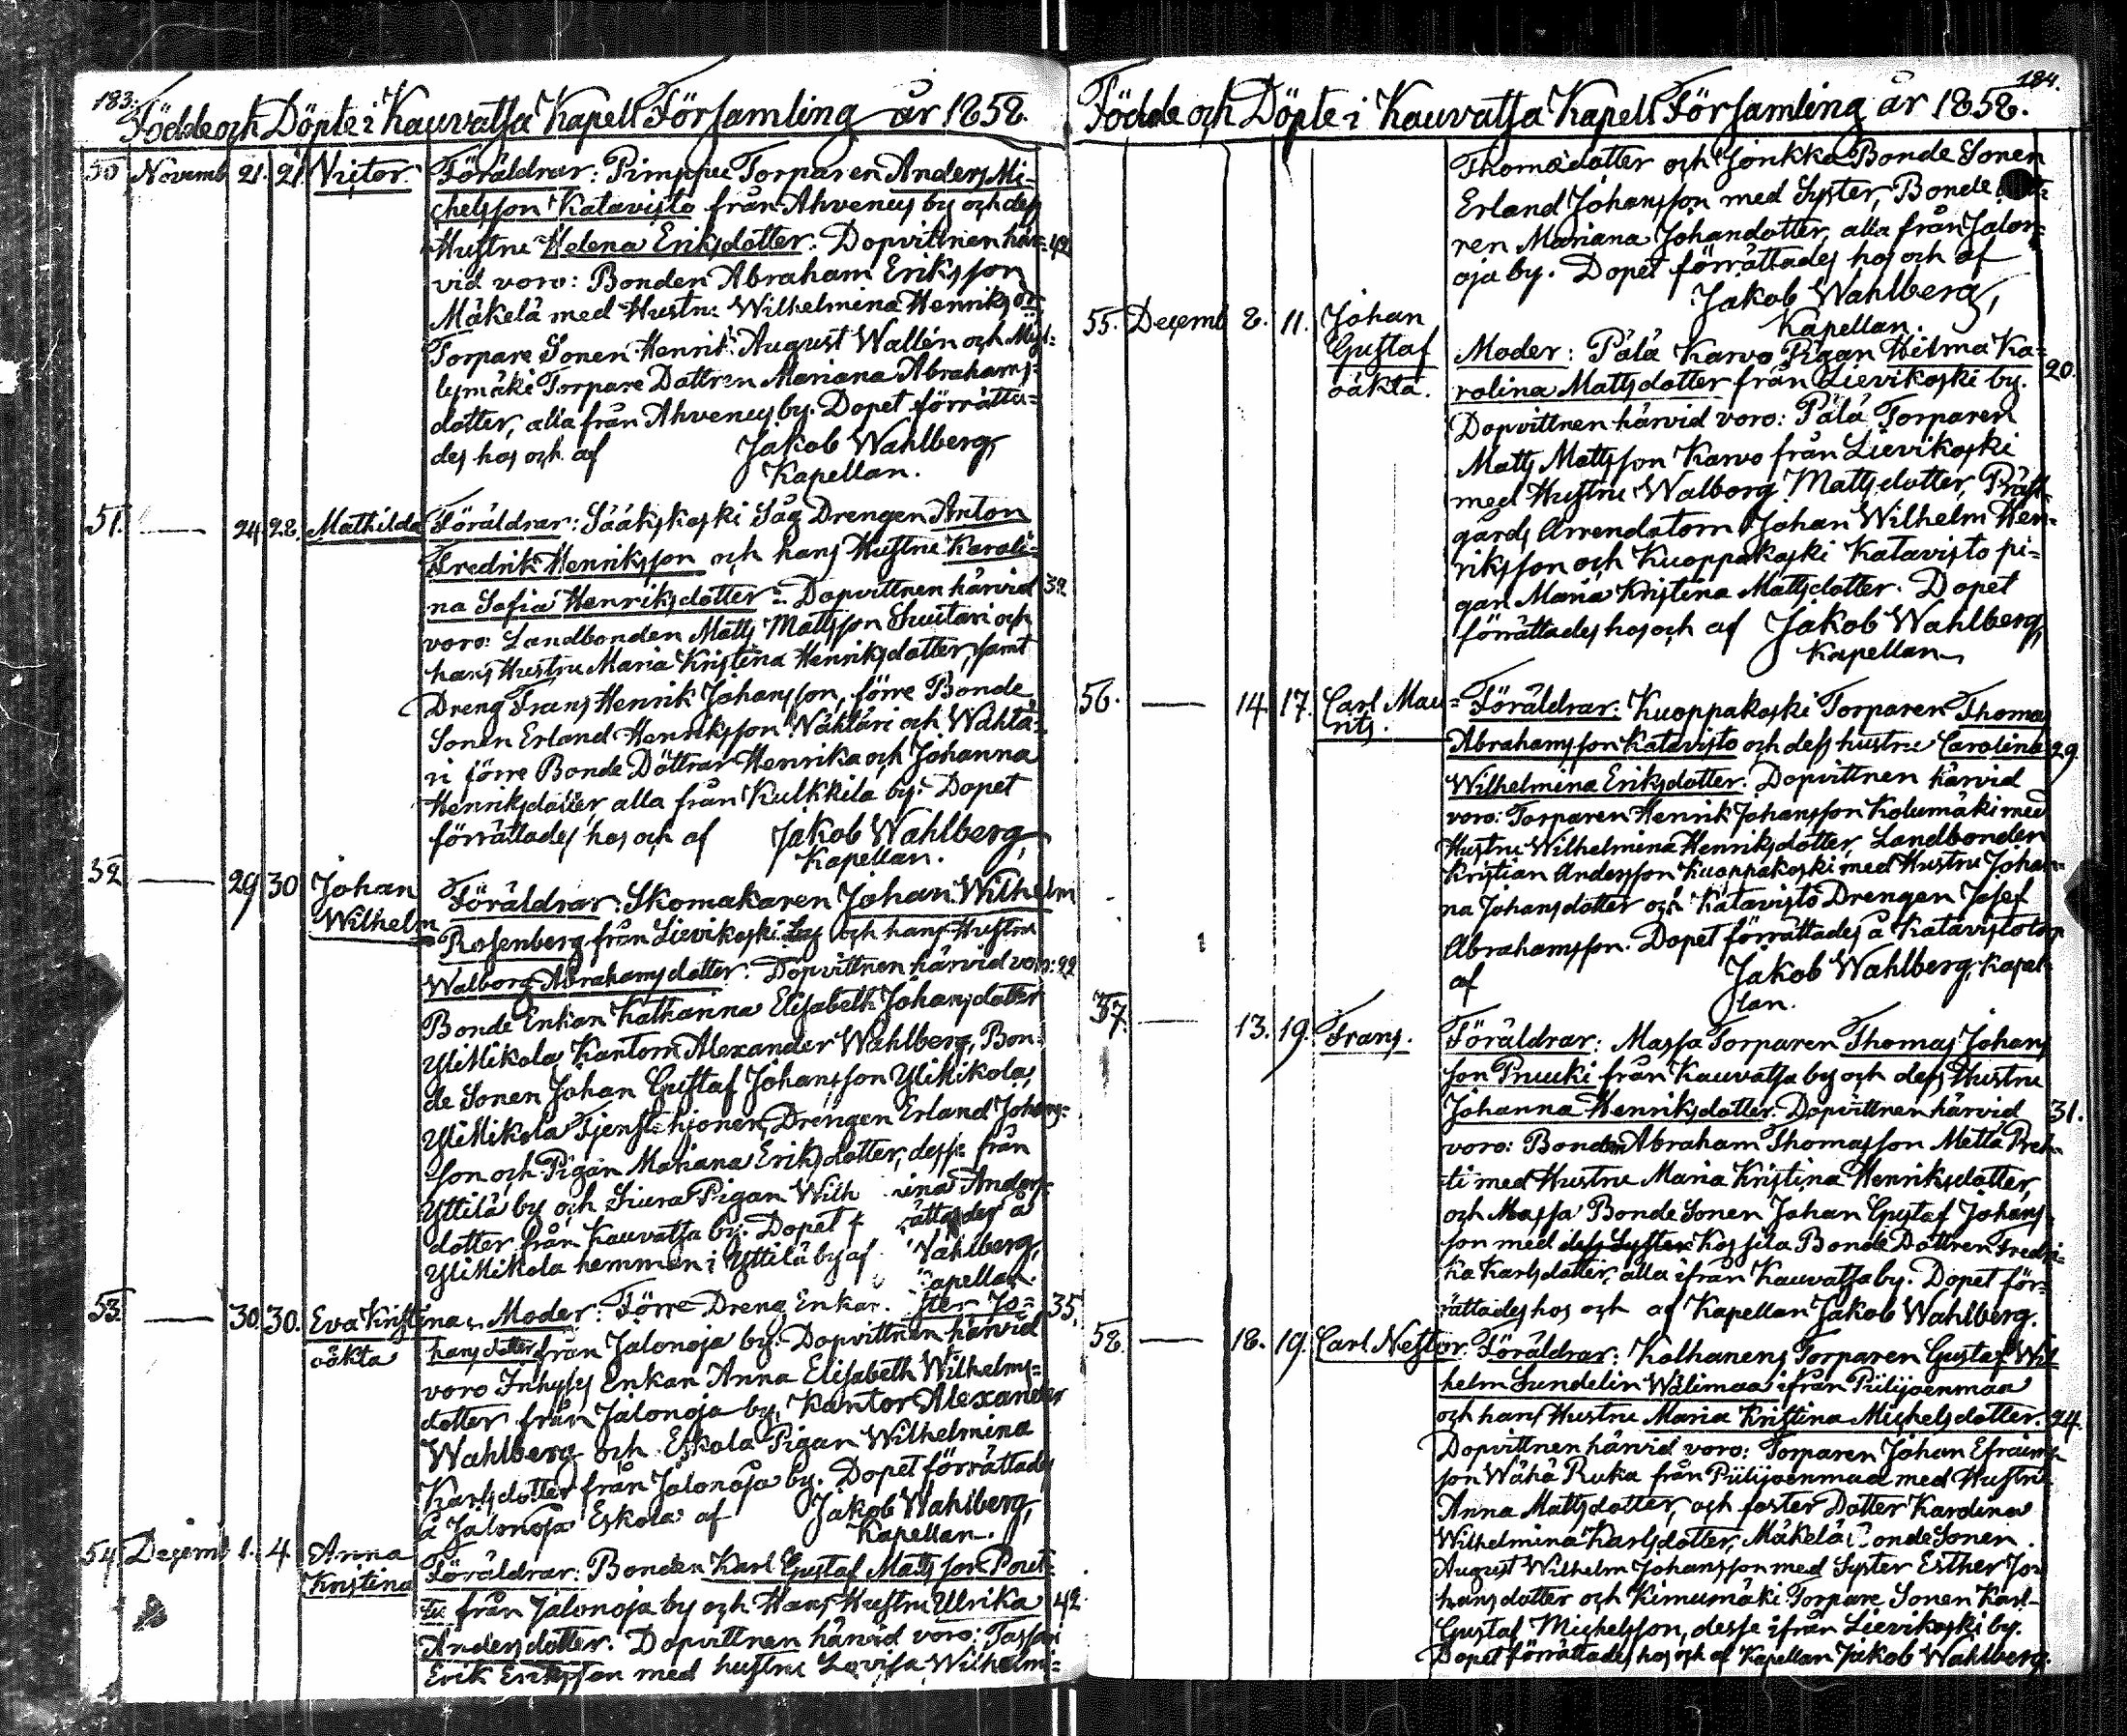 183.
Födde och Döpte i Kauvatsa Kapell Församling år 1858.
50 Novemb 21. 21. Victor. Föräldrar: Pimppu Torparen Anders Mi-
chelsson Katavisto från Ahvenus by och dess
Hustru Helena Eriksdotter. Dopvittnen här= 42
vid voro: Bonden Abraham Eriksson
Mäkelä med Hustru Wilhelmina Henriksdr
Torpare Sonen Henrik August Wallén och
lymäki Torpare Dottren Mariana Abrahams=
dotter, alla från Ahvenus by. Dopet förrätta=
des hos och af Jakob Wahlberg,
Kapellan.
51. — 24. 28. Mathilda Föräldrar: Sääkskoski Såg Drengen Anton
Fredrik Henriksson och hans Hustru Karoli=
na Sofia Henriksdotter. Dopvittnen härvid 32
voro: Landbonden Matts Mattsson Suutari och
hans Hustru Maria Kristina Henriksdotter, samt
Dreng Frans Henrik Johansson, förre Bonde
Sonen Erland Henriksson Wähläri och Wähla=
ri förre Bonde Döttrar Henrika och Johanna
Henriksdotter, alla från Kulkkila by. Dopet
förrättades hos och af Jakob Wahlberg,
Kapellan.
52 — 29 30 Johan Föräldrar: Skomakaren Johan Wilhelm
Wilhelm Rosenberg från Lievikoski by och hans Hustru
Walborg Abrahamsdotter. Dopvittnen härvid voro: 22
Bonde Enkan Katharina Elisabeth Johansdotter
YliMikola, Kantorn Alexander Wahlberg, Bon-
de Sonen Johan Gustaf Johansson YliMikola,
YliMikola Tjenstehjonen, Drengen Erland Johans=
son och Pigan Mariana Eriksdotter, desse från
Yttilä by och Siura Pigan Wilh ina Anders=
dotter från Kauvatsa by. Dopet f rättades å
YliMikola hemman i Yttilä by af Wahlberg,
apellan.
53. — 30. 30. Eva Kristina. Moder: Förre Dreng Enkan ster Jo= 35.
oäkta hansdotter från Jalonoja by. Dopvittnen härvid
voro Inhyses Enkan Anna Elisabeth Wilhelms=
dotter från Jalonoja by, Kantor Alexander
Wahlberg och Eskola Pigan Wilhelmina
Karlsdotter från Jalonoja by. Dopet förrättades
å Jalonoja Eskola af Jakob Wahlberg,
Kapellan.
54 Decemb 1. 4. Anna
Kristina Föräldrar: Bonden Karl Gustaf Matsson Pout=
tu från Jalonoja by och Hans Hustru Ulrika 42.
Andersdotter. Dopvittnen härvid voro: Tassari
Erik Eriksson med hustru Lovisa Wilhelmi=
184.
Födde och Döpte i Kauvatsa Kapell Församling år 1858.
Thomædotter och Jonkka Bonde Sonen
Erland Johansson med Syster, Bonde
ren Mariana Johandotter, alla från Jalon=
oja by. Dopet förrättades hos och af
Jakob Wahlberg,
Kapellan.
55. Decemb 8. 11. Johan
Gustaf Moder: Pälä Karvo Pigan Hilma Ka= 20.
oäkta. rolina Mattsdotter från Lievikoski by.
Dopvittnen härvid voro: Pälä Torparen
Matts Mattsson Karvo från Lievikoski
med Hustru Walborg Mattsdotter, Präst-
gårds Arrendatorn Johan Wilhelm Hen-
riksson och Kuoppakoski Katavisto pi=
gan Maria Kristina Mattsdotter. Dopet
förrättades hos och af Jakob Wahlberg,
Kapellan
56. — 14. 17. Carl Mau= Föräldrar: Kuoppakoski Torparen Thomas
rits. Abrahamsson Katavisto och dess hustru Carolina 29.
Wilhelmina Eriksdotter. Dopvittnen härvid
voro: Torparen Henrik Johansson Kolumäki med
Hustru Wilhelmina Henriksdotter, Landbonden
Kristian Andersson Kuoppakoski med Hustru Johan=
na Johansdotter och Katavisto Drengen Josef
Abrahamsson. Dopet förrättades å Katavisto torp
af Jakob Wahlberg, Kapel-
lan.
57. — 13. 19. Frans. Föräldrar: Massa Torparen Thomas Johans
son Pruuki från Kauvatsa by och dess Hustru
Johanna Henriksdotter. Dopvittnen härvid 31.
voro: Bonden Abraham Thomasson Mattä Pret-
ti med Hustru Maria Kristina Henriksdotter,
och Massa Bonde Sonen Johan Gustaf Johans-
son med dess Syster Kossila Bonde Dottren Fredri-
ka Karlsdotter, alla ifrån Kauvatsa by. Dopet för=
rättades hos och af Kapellan Jakob Wahlberg.
58. — 18. 19. Carl Nestor. Föräldrar: Kolhanens Torparen Gustaf Wil
helm Sundelin Wälimaa ifrån Piilijoenmaa
och hans Hustru Maria Kristina Michelsdotter. 24.
Dopvittnen härvid voro: Torparen Johan Efraims
son Wähä Ruka från Piilijoenmaa med Hustru
Anna Mattsdotter, och foster Dotter Karolina
Wilhelmina Karlsdotter, Mäkelä Bonde Sonen
August Wilhelm Johansson med Syster Esther Jo=
hansdotter och Kimumäki Torpare Sonen Karl
Gustaf Michelsson, desse ifrån Lievikoski by.
Dopet förrättades hos och af Kapellan Jakob Wahlberg.